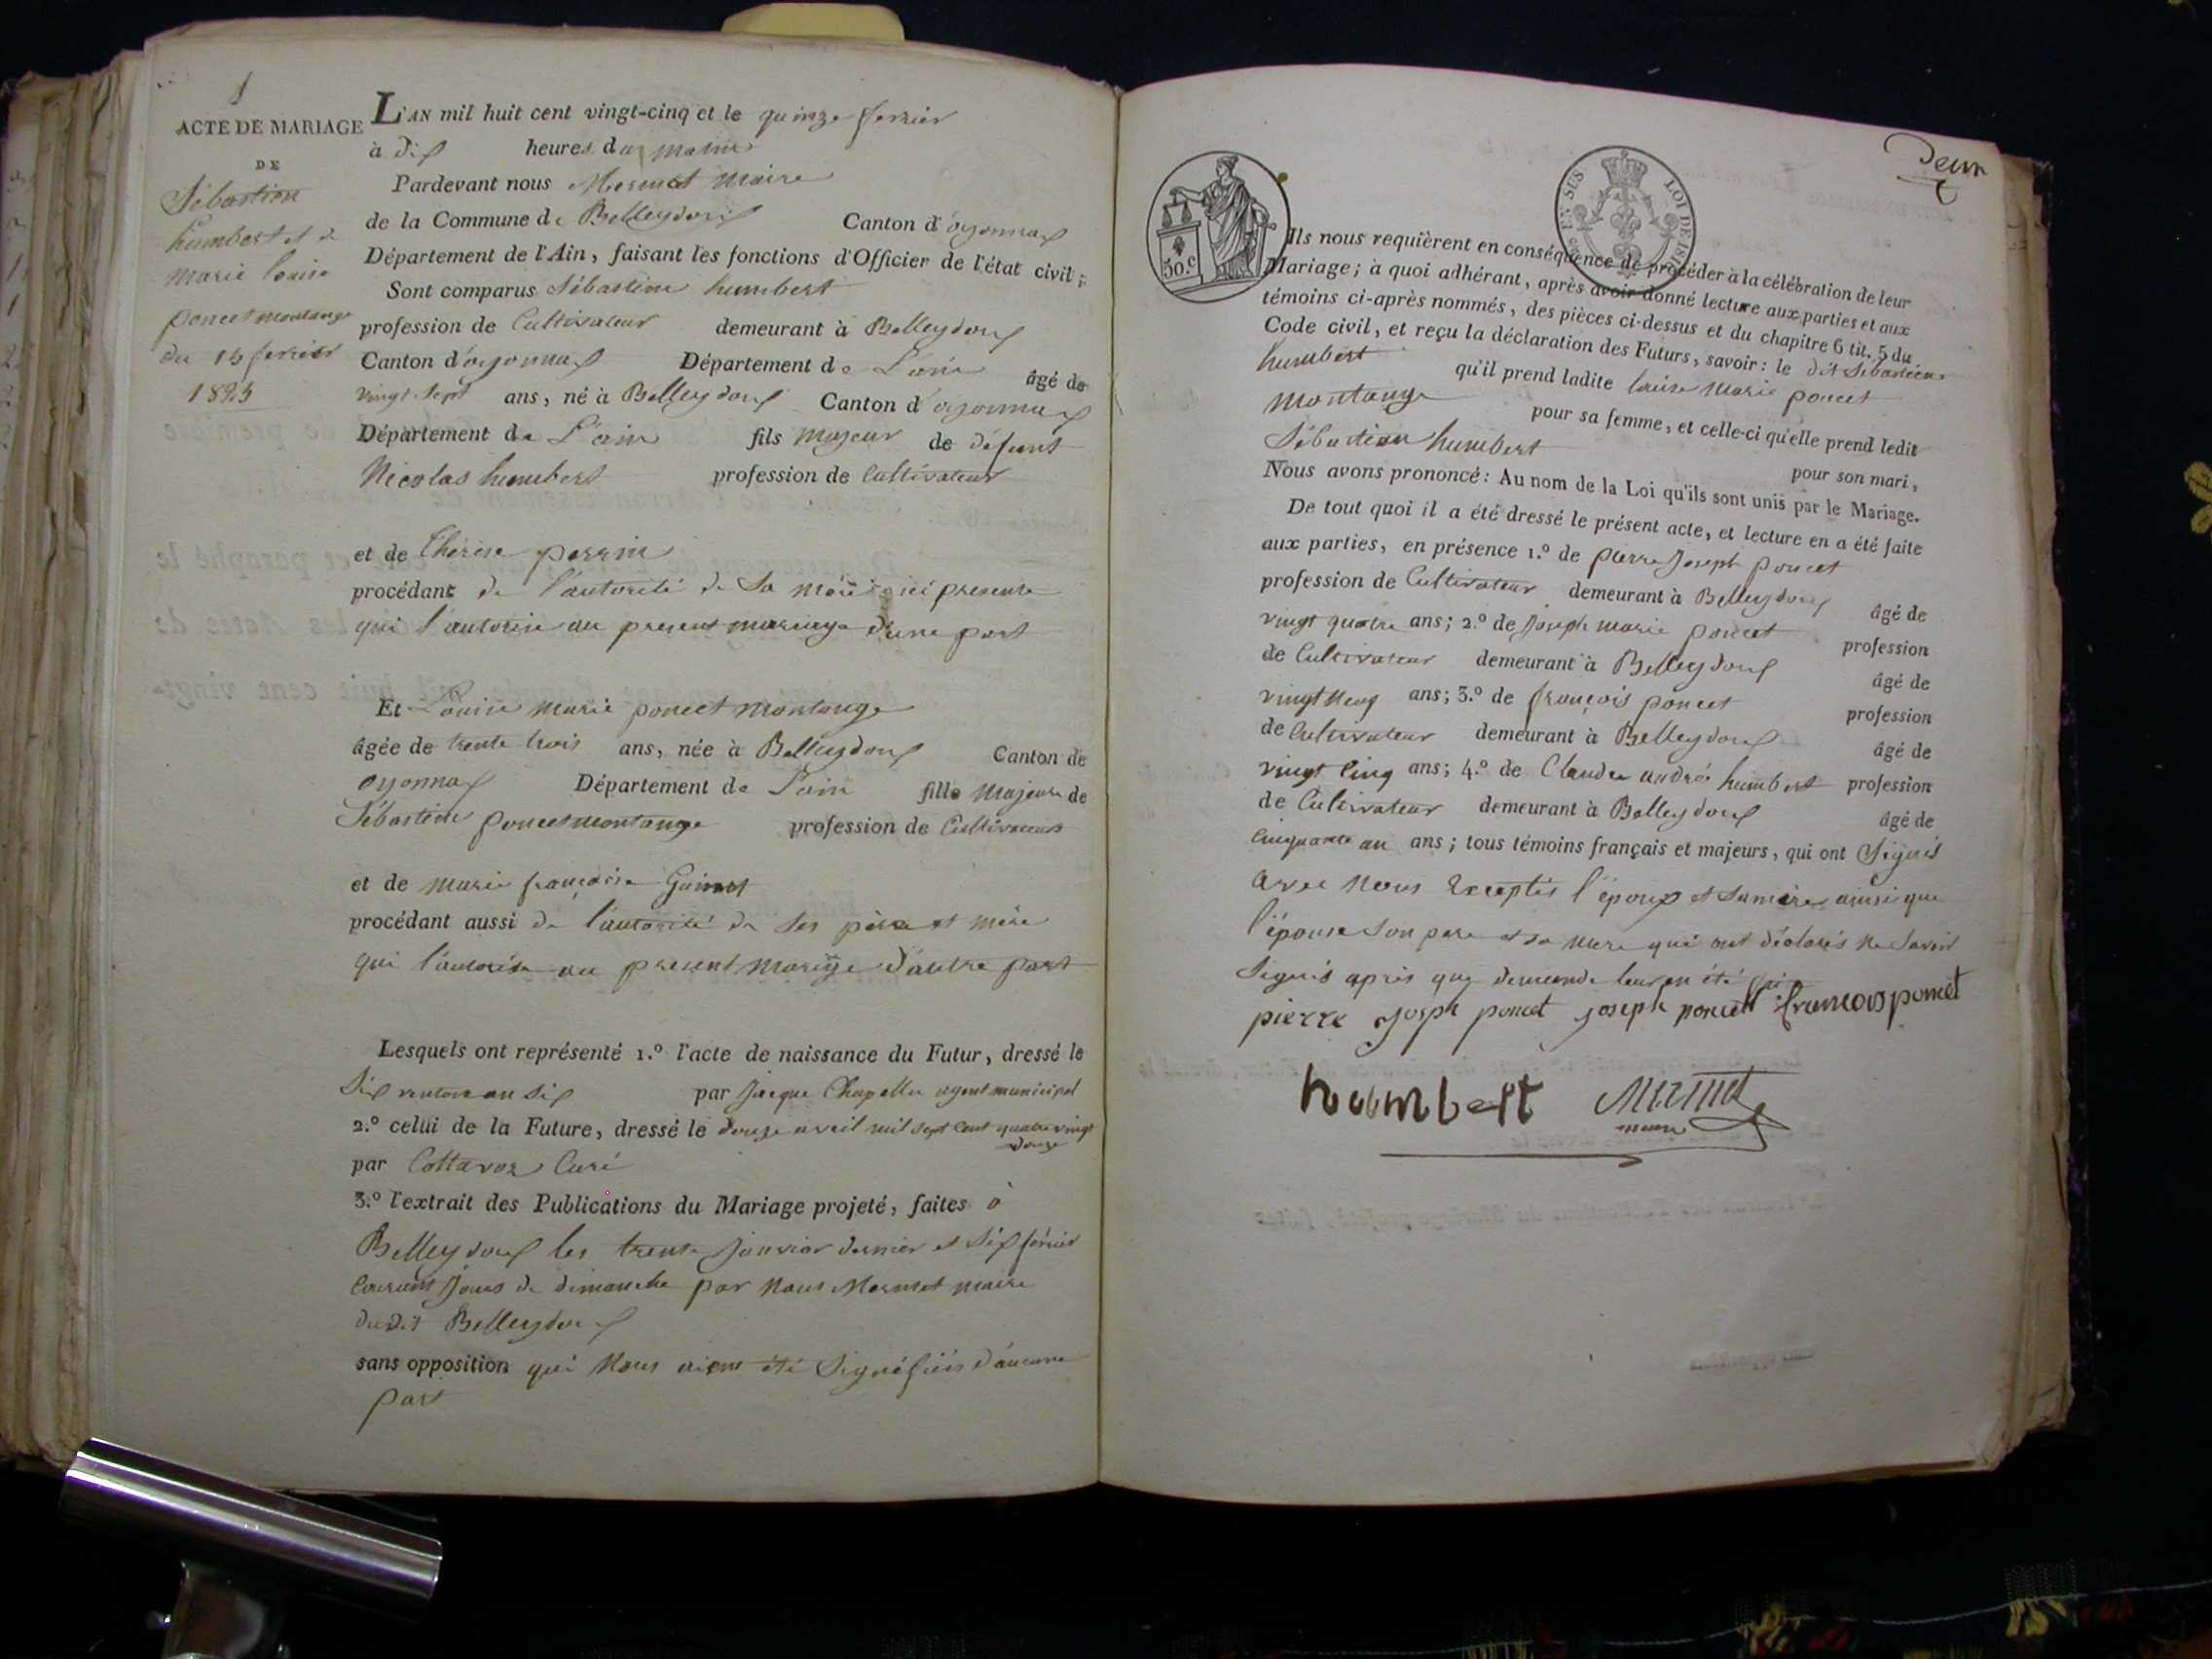 1
ACTE DE MARIAGE
DE
Sébastien
humbert et de
marie louise
poncet montange
du 15 fevrier
1825
L'AN mil huit cent vingt-cinq et le quinze fevrier
à dix heures du matin
Pardevant nous Mermet Maire
de la Commune de Belleydoux Canton d'oyonnax
Département de l'Ain, faisant les fonctions d'Officier de l'état civil;
Sont comparus Sébastien humbert
profession de Cultivateur demeurant à Belleydoux
Canton d'oyonnax Département de L'ain âgé de
vingt sept ans, né à Belleydoux Canton d'oyonnax
Département de L'ain fils majeur de défunt
Nicolas humbert profession de Cultivateur
et de Thérèse perrin
procédant de l'autorité de Sa mère ici presente
qui l'autorise au present mariage d'une part
Et Louise marie poncet montange
âgée de trente trois ans, née à Belleydoux Canton de
oyonnax Département de L'ain fille Majeure de
Sébastien poncet montange profession de Cultivateur
et de marie françoise
procédant aussi de l'autorité de ses père et mère
qui l'autorise au present mariage d'autre part
Lesquels ont représenté 1.º l'acte de naissance du Futur, dressé le
Six ventose an Six par Jacque Chapelle agent municipal
2.º celui de la Future, dressé le douze avril mil sept cent quatre vingt
douze
par Cottavoz Curé
3.º l'extrait des Publications du Mariage projeté, faites à
Belleydoux les trente Janvier dernier et Six février
Courant Jours de dimanche par Nous Mermet maire
dudit Belleydoux
sans opposition qui Nous aient été Signifiés d'aucune
part
Deux
30.c
EN SUS
LOI DE 1816
Ils nous requièrent en conséquence de procéder à la célébration de leur
Mariage; à quoi adhérant, après avoir donné lecture aux parties et aux
témoins ci-après nommés, des pièces ci-dessus et du chapitre 6 tit. 5 du
Code civil, et reçu la déclaration des Futurs, savoir: le dit Sébastien
humbert qu'il prend ladite louise Marie poncet
montange pour sa femme, et celle-ci qu'elle prend ledit
Sébastien humbert pour son mari,
Nous avons prononcé: Au nom de la Loi qu'ils sont unis par le Mariage.
De tout quoi il a été dressé le présent acte, et lecture en a été faite
aux parties, en présence 1.º de pierre Joseph poncet
profession de Cultivateur demeurant à Belleydoux âgé de
vingt quatre ans; 2.º de Joseph marie poncet profession
de Cultivateur demeurant à Belleydoux âgé de
vingt Neuf ans; 3.º de françois poncet profession
de Cultivateur demeurant à Belleydoux âgé de
vingt Cinq ans; 4.º de Claude andré humbert profession
de Cultivateur demeurant à Belleydoux âgé de
Cinquante un ans; tous témoins français et majeurs, qui ont Signés
avec Nous Exceptés l'époux et Sa mère ainsi que
l'épouse Son pere et sa mere qui ont déclarés ne Savoir
Signés après que demande leur en été
pierre Josph poncet joseph poncet francois poncet
houmbert Mermet
maire